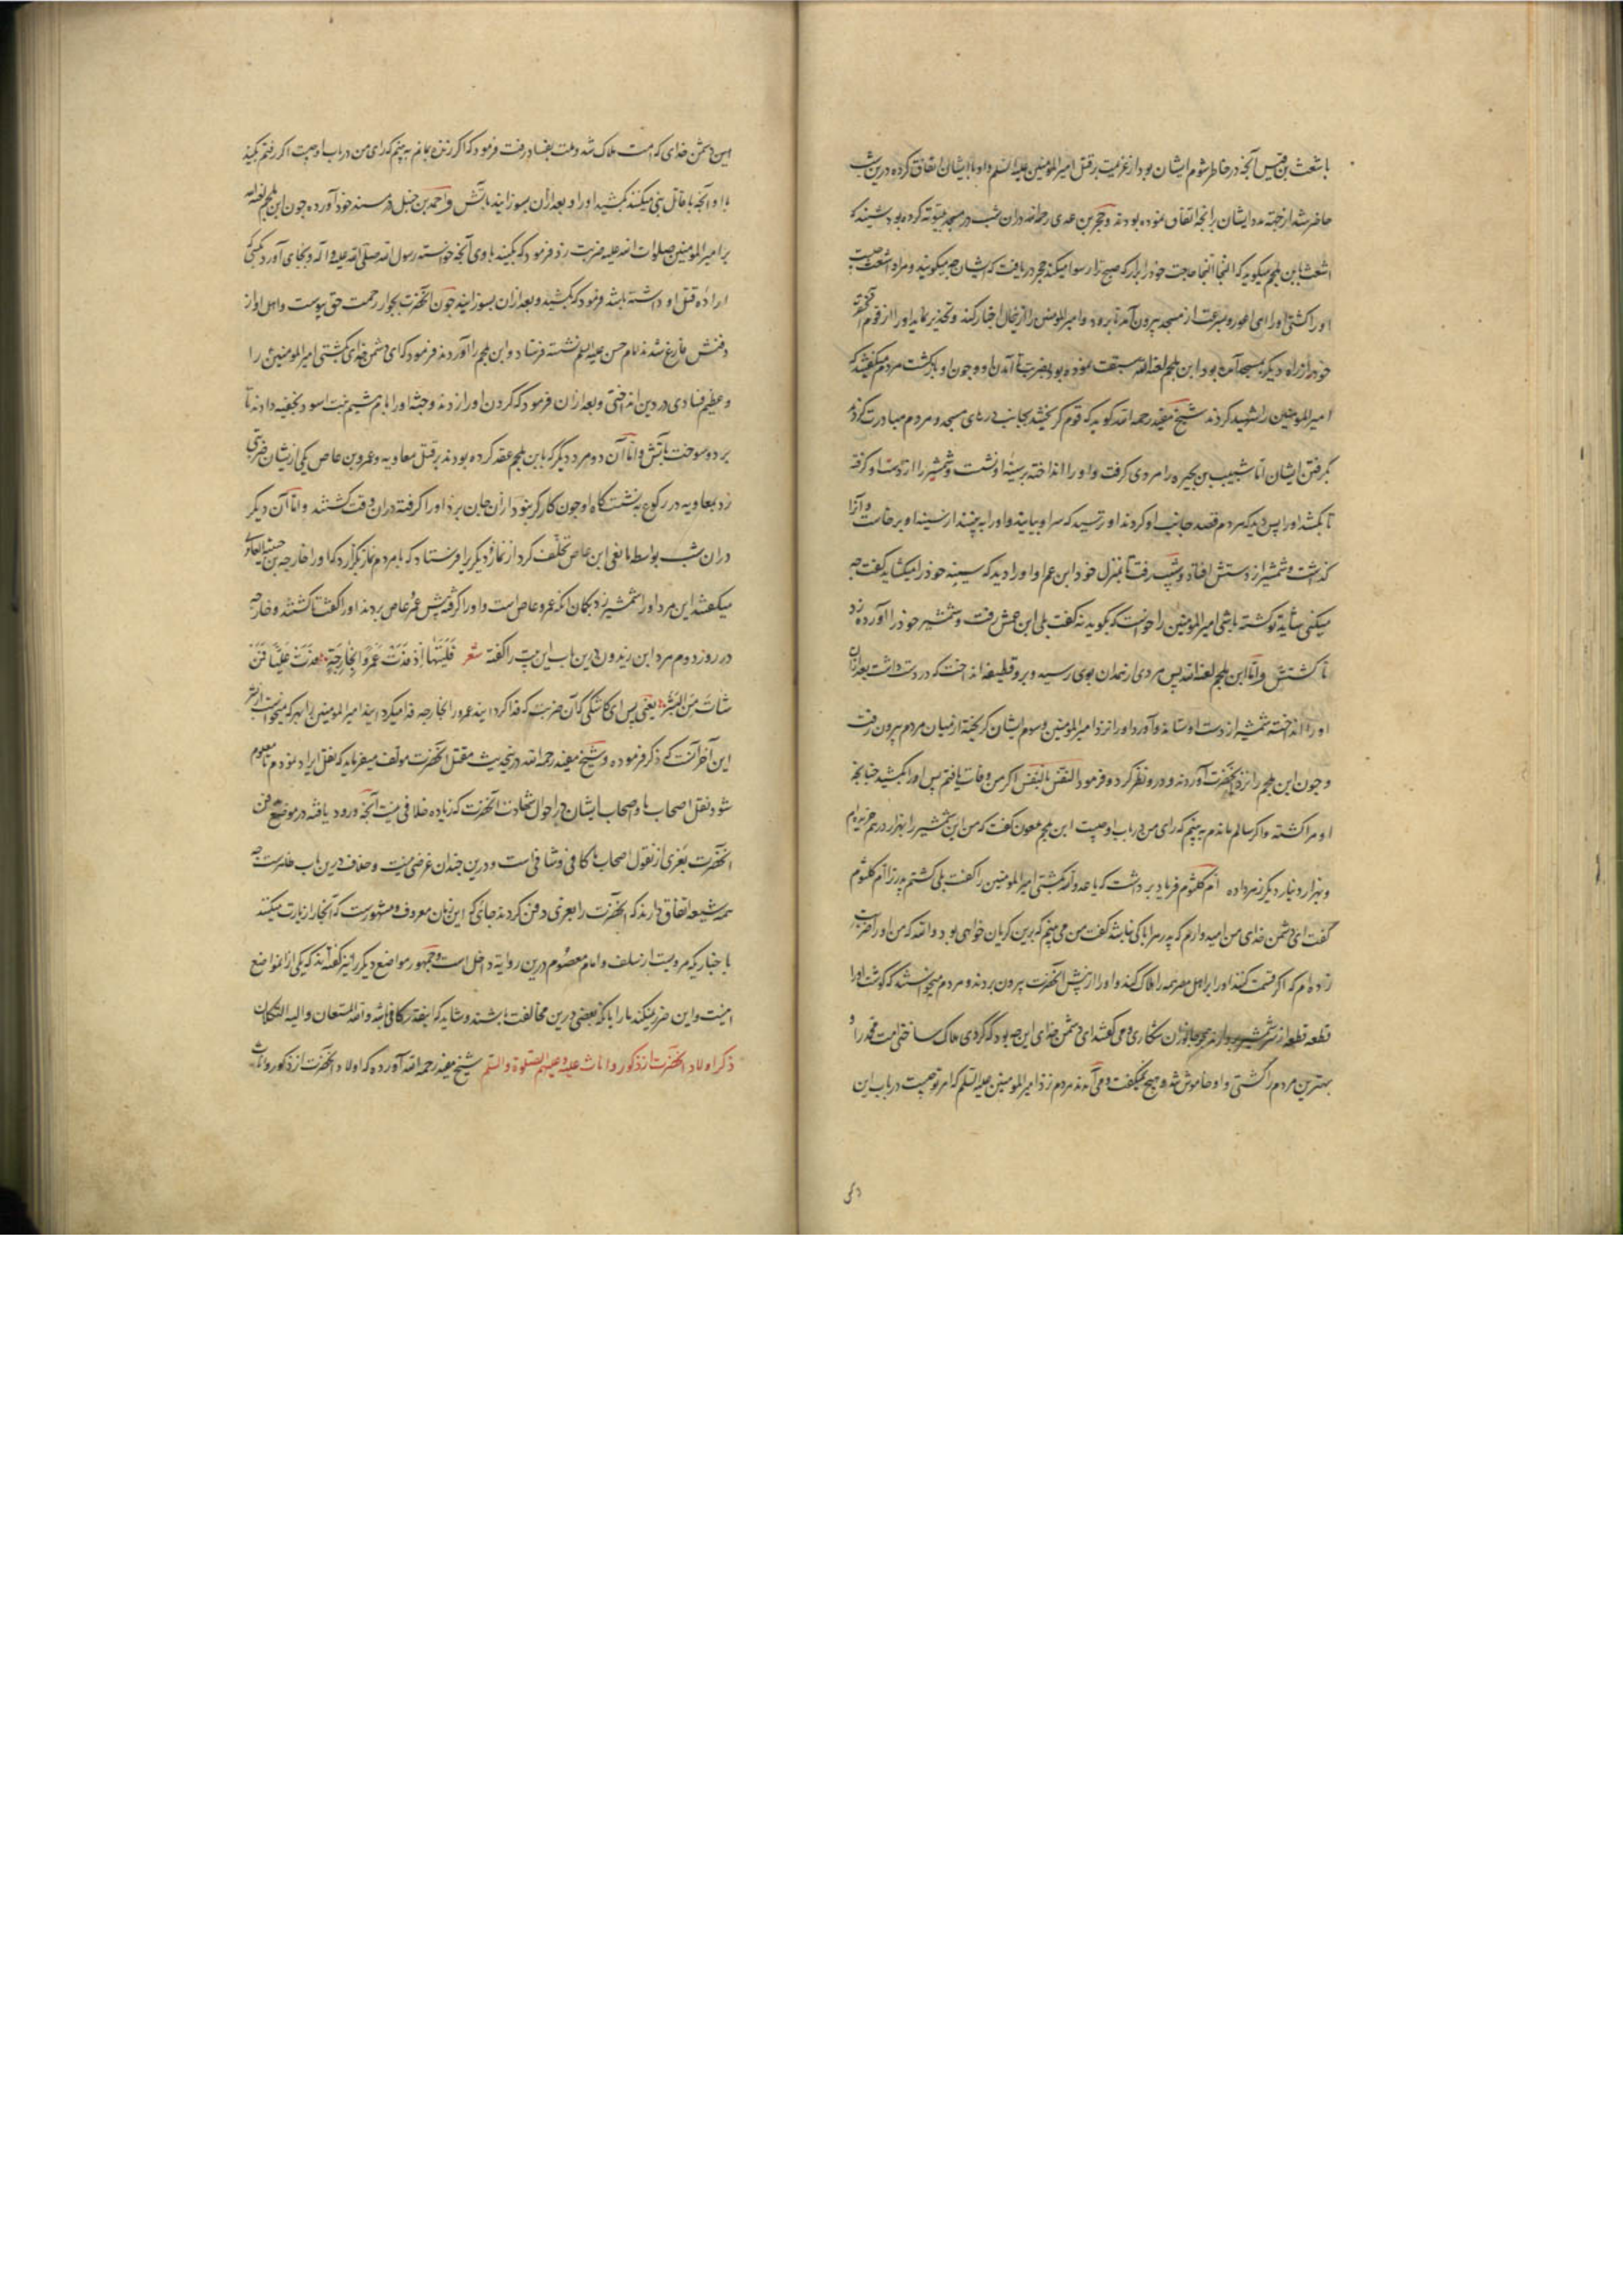 باشعث بن قیس آنچه در خاطر شوم ایشان بود از عزیمت بر قتل امیرالمؤمنین علیه السلم و او با ایشان اتفاق کرده درین شب
حاضر شد از جهة مدد ایشان برانچه اتفاق نموده بودند و حجر بن عدی رحمه الله دران شب در مسجد بیتوته کرده بود شنید که
اشعث بابن ملجم میکوید که النجا النجا حاجت خود را برار که صبح ترا رسوا میکند حجر دریافت که ایشان چه میکویند و مراد اشعث چیست
او را کشتی اورا ای اعور و بسرعت از مسجد بیرون آمد تا برود و امیرالمومنین را ازین حال اخبار کند و تحذیر نماید اورا از قوم آنحضرت
خود از راه دیکر بمسجد آمده بود و ابن ملجم لعنه الله سبقت نموده بود بضرب تا آمدن او و چون او بازکشت مردم میکفتند که
امیرالمومنین را شهید کردند شیخ مفید رحمه الله کوید که قوم کریختند بجانب درهای مسجد و مردم مبادرت کردند
بکرفتن ایشان اما شبیب بن بجیره را مردی کرفت و او را انداخته بر سینهٔ او نشست و شمشیر را از دست او کرفته
تا بکشد اورا پس دید که مردم قصد جانب او کردند او ترسید که سراو بیایند و او را به بینند از سینه او برخاست و آنرا
کذاشت و شمشیر از دستش افتاد و شبیب رفت تا بمنزل خود ابن عم او اورا دید که سینه خود را میکشاید کفت چه
میکنی شاید تو کشته باشی امیرالمومنین را خواست که بکوید نه کفت بلی ابن عمش رفت و شمشیر خود را آورده زد
تا کشتش و اما ابن ملجم لعنه الله پس مردی از همدان بوی رسید و برو قطیفه انداخت که در دست داشت بعد ازان
او را انداخته شمشیر از دست او ستاند و آورد او را نزد امیرالمومنین و سوم ایشان کریخته از میان مردم بیرون رفت
و چون ابن ملجم را نزد آنحضرت آوردند و درو نظر کرد و فرمود النفس بالنفس اکر من وفات یافتم پس اورا بکشید چنانچه
او مرا کشته و اکر سالم ماندم به بینم که رای من در باب او چیست ابن ملجم ملعون کفت که من این شمشیر را بهزار درهم خریده‌ام
و بهزار دینار دیکر زهر داده ام کلثوم فریاد برداشت که یا عدو الله بکشتی امیرالمومنین را کفت بلی کشتم پدر ترا ام کلثوم
کفت ای دشمن خدای من امید وارم که پدر مرا باکی نباشد کفت من می بینم که برین کریان خواهی بود والله که من او را ضربت
زده‌ام که اکر قسمت کنند اورا بر اهل مصر همه را هلاک کند و او را از پیش آنحضرت بیرون بردند و مردم میخواستند که کوشت اورا
قطعه قطعه از شمشیر بردارند چون جانوران شکاری و می کفتند ای دشمن خدای این چه بود که کردی هلاک ساختی امت محمد را و
بهترین مردم را کشتی و او خاموش شد و هیچ نمیکفت و می آمدند مردم نزد امیرالمومنین علیه السلم که امر تو چیست در باب این
این دشمن خدای که امت هلاک شد و ملت بفساد رفت فرمود که اکر زنده بمانم به بینم که رای من در باب او چیست اکر رفتم بکنید
با او آنچه با قاتل نبی میکنند بکشید اورا و بعد ازان بسوزانید بآتش و احمد بن حنبل در مسند خود آورده چون ابن ملجم لعنه الله
بر امیرالمومنین صلوات الله علیه ضربت زد فرمود که بکنید با وی آنچه خواسته رسول الله صلی الله علیه و اله و بجای آورد بکسی که
ارادهٔ قتل او داشته باشد فرمود که بکشید و بعد ازان بسوزانید چون آنحضرت بجوار رحمت حق پیوست و اهل او از
دفنش فارغ شدند امام حسن علیه السلم نشسته فرستاد و ابن ملجم را آوردند فرمود که ای دشمن خدای بکشتی امیرالمومنین را
و عظیم فسادی در دین انداختی و بعد ازان فرمود که کردن اورا زدند و جثهٔ او را بام هیثم بنت اسود نخعیه دادند تا
برد و سوخت بآتش و اما آن دو مرد دیگر که با ابن ملجم عقد کرده بودند بر قتل معاویه و عمرو بن عاص یکی از ایشان ضربتی
زد بمعاویه در رکوع به نشستگاه او چون کارکر نبود ازان جان برد او را کرفته دران وقت کشتند و اما آن دیکر
دران شب بواسطه مانعی ابن عاص تخلف کرد از نماز و دیکری را فرستاد که با مردم نماز بگزارد که او را خارجه بن حبیبه العامری
میکفتند این مرد اورا شمشیر زد بکمان انکه عمرو عاص است و او را کرفته پیش عمرو عاص بردند او را کفت تا کشتند و خارجه
در روز دوم مرد ابن زیدون درین باب این بیت را کفته شعر فَلَیتَها اِذ فَدَت عَمرًوا بِخارِجَةٍ فَدَت عَلِیًّا بِمَن
شاءَت مِنَ البَشَرِ یعنی پس ای کاشکی که آن ضربت که فدا کردانید عمرو را بخارجه فدا میکردانید امیرالمومنین را بهر که میخواست از بشر
این آخر آنست که ذکر فرموده و شیخ مفید رحمه الله در حدیث مقتل آنحضرت مولف میفرماید که نقل ایراد نمودم تا معلوم
شود نقل اصحاب ما و اصحاب ایشان در احوال شهادت آنحضرت که زیاده خلافی نیست آنچه ورود یافته در موضع دفن
آنحضرت بغری از نقول اصحاب ما کافی و شافی است و درین چندان غرضی نیست و خلاف درین باب ظاهرست چه
همه شیعه اتفاق دارند که آنحضرت را بغری دفن کردند جائی که این زمان معروف و مشهورست که آنجا را زیارت میکنند
باخباریکه مرویست از سلف و امام معصوم درین روایة داخل است و جمهور مواضع دیکر را نیز کفته‌اند که یکی از انمواضع
اینست و این ضرر نمیکند مارا با آنکه بعضی درین مخالفت باشند و شاید که اینقدر کافی باشد و الله المستعان و الیه التکلان
ذکر اولاد آنحضرت از ذکور و اناث علیه و علیهم الصلوة و السلم شیخ مفید رحمه الله آورده که اولاد آنحضرت از ذکور و اناث